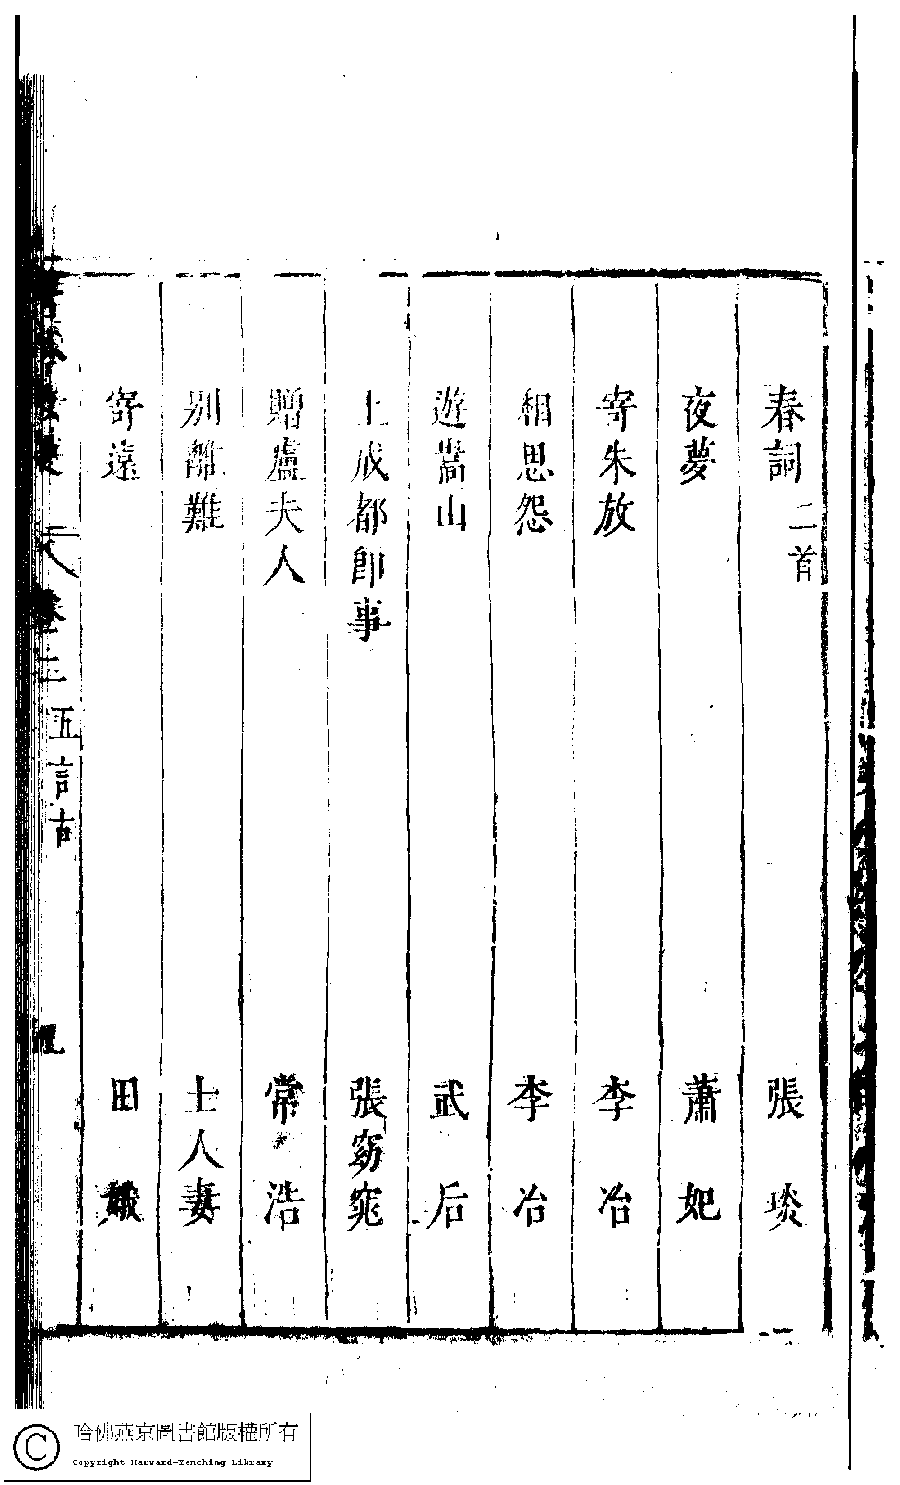 春詞二首 張琰
夜夢 蕭妃
寄朱放 李冶
相思怨 李冶
遊嵩山 武后
上成都卽事 張窈窕
贈盧夫人 常浩
別離難 士人妻
寄遠 田娥
卷二 五言古
哈佛燕京圖書館版權所有
Copyright Harvard-Yenching Library